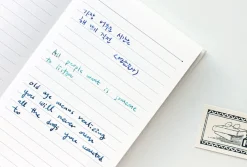 가장
내 계 가장
All people want is someone
to listen
old age means realizing
you will never own
all the dogs you wanted